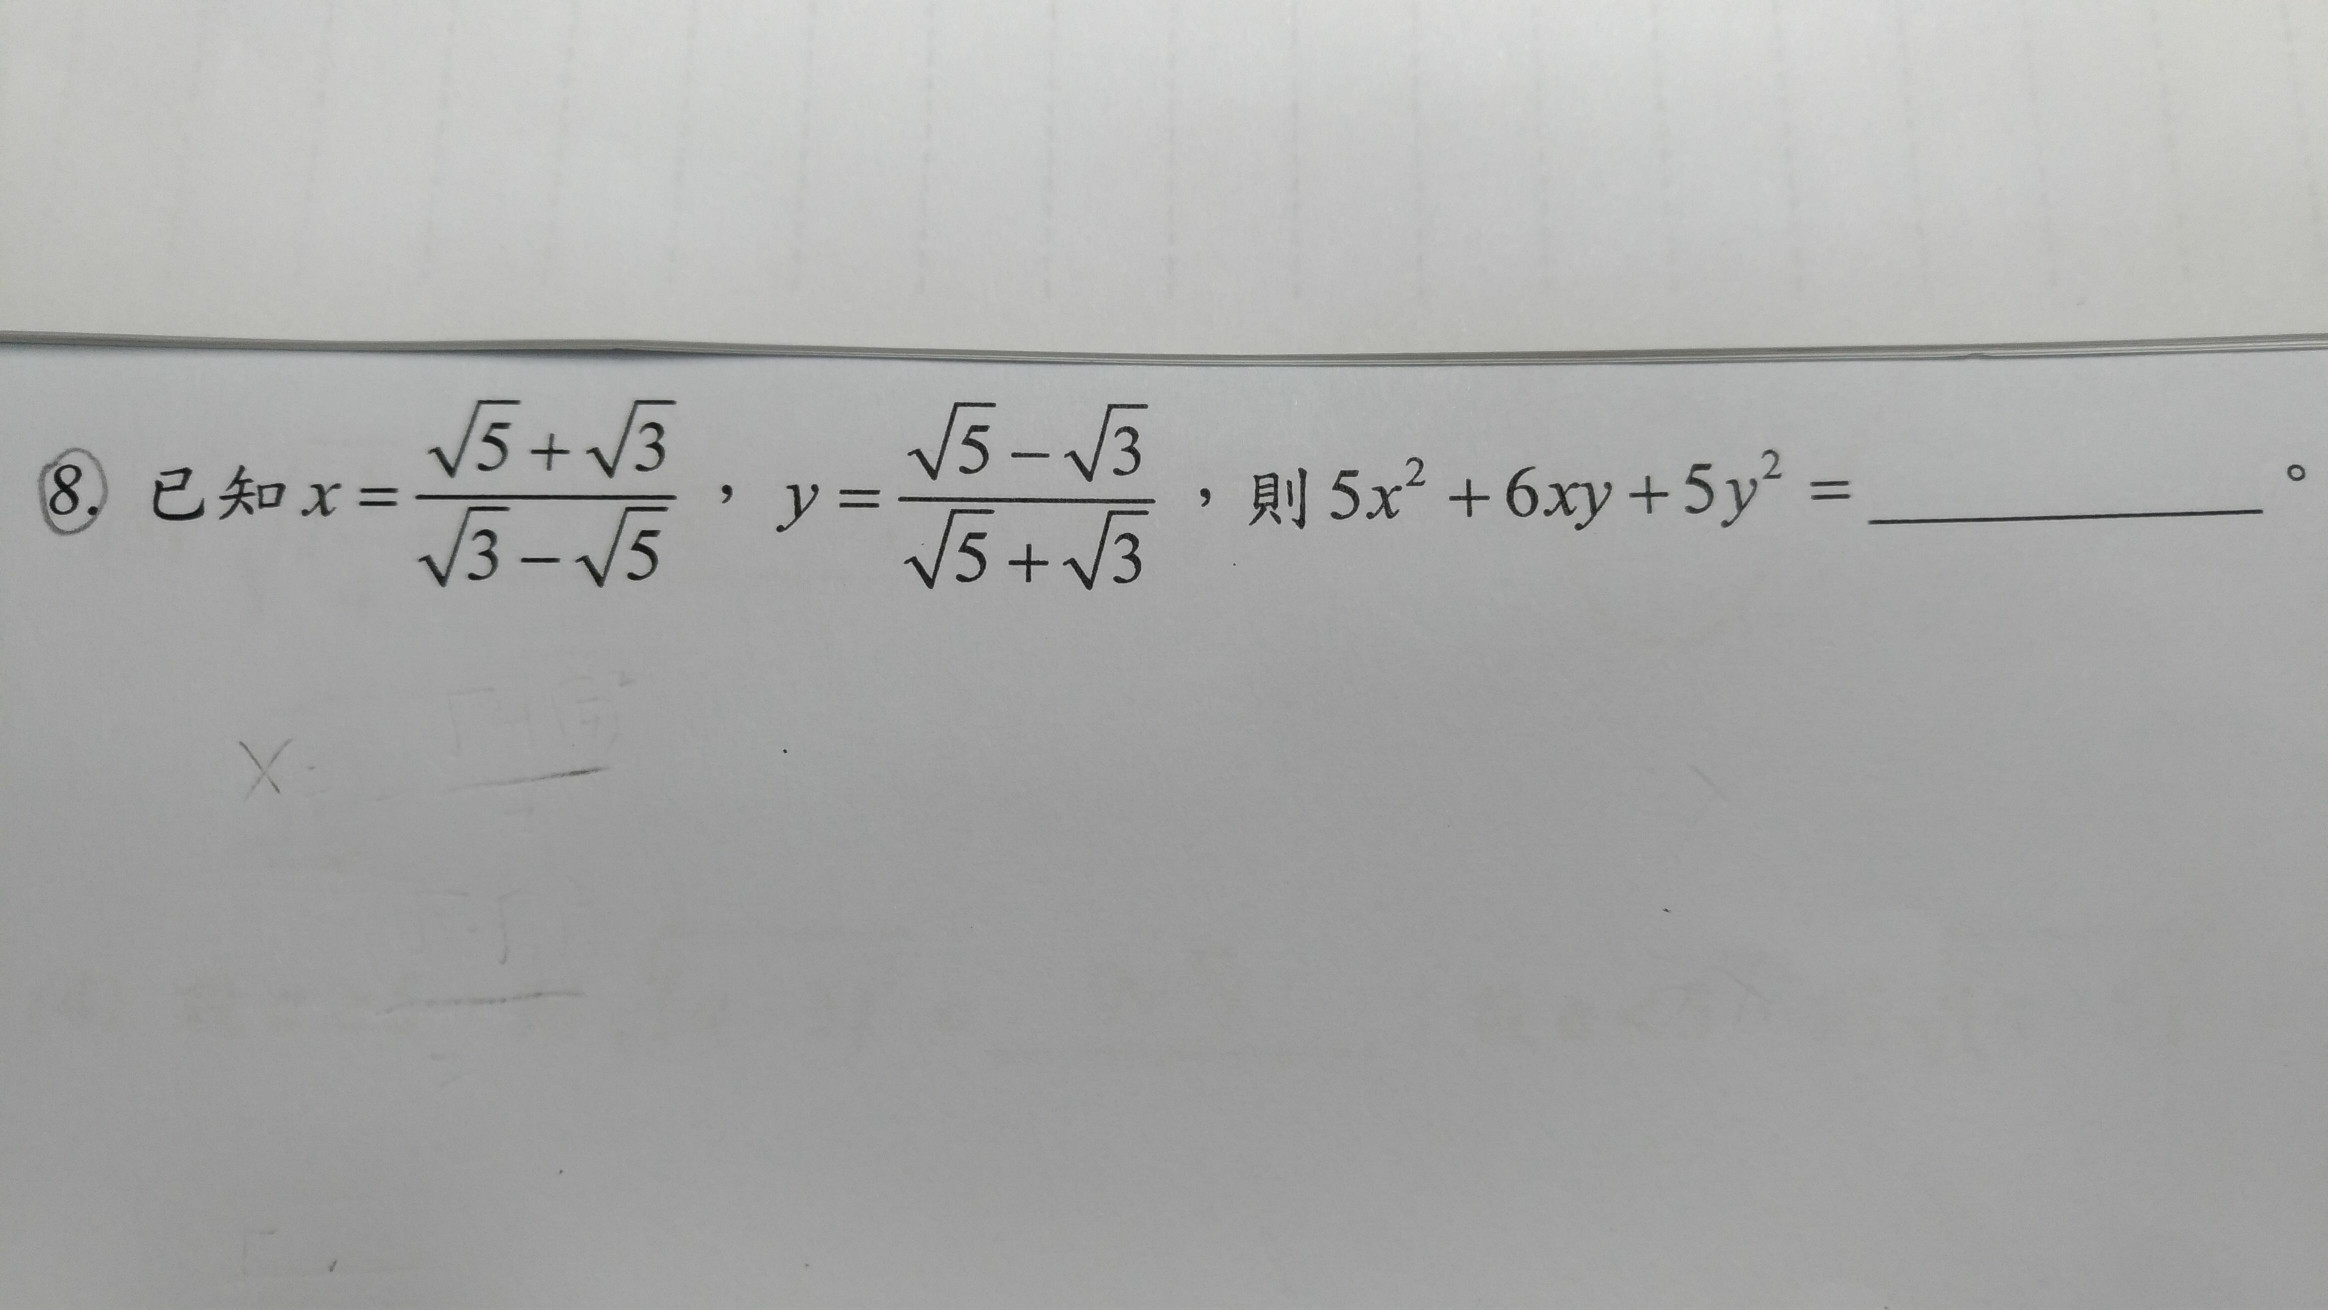 8. 已知 x = \frac{\sqrt{5}+\sqrt{3}}{\sqrt{3}-\sqrt{5}}，y = \frac{\sqrt{5}-\sqrt{3}}{\sqrt{5}+\sqrt{3}}，則 5x² + 6xy + 5y² = ________。
X